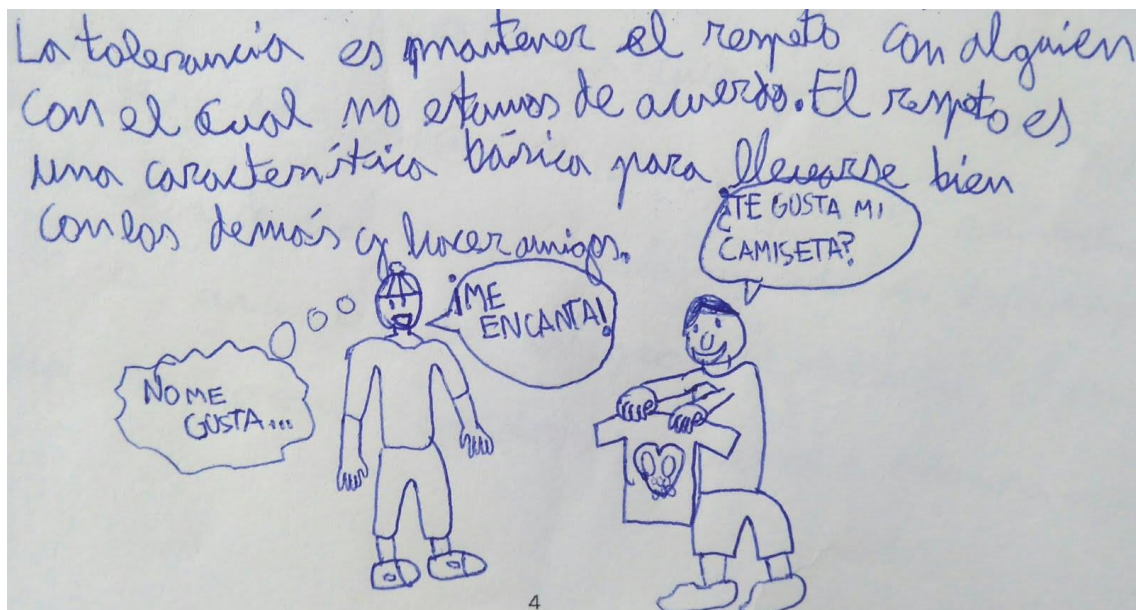 La tolerancia es mantener el respeto con alguien
con el cual no estamos de acuerdo. El respeto es
una característica básica para llevarse bien
con los demás y hacer amigos.
¿TE GUSTA MI
CAMISETA?
¡ME
ENCANTA!
NO ME
GUSTA...
4